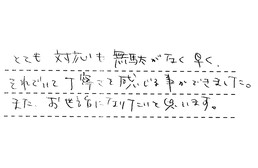 とても 対応も 無駄がなく 早く、
それでいて丁寧さを感じる事ができました。
また、お世話になりたいと思います。